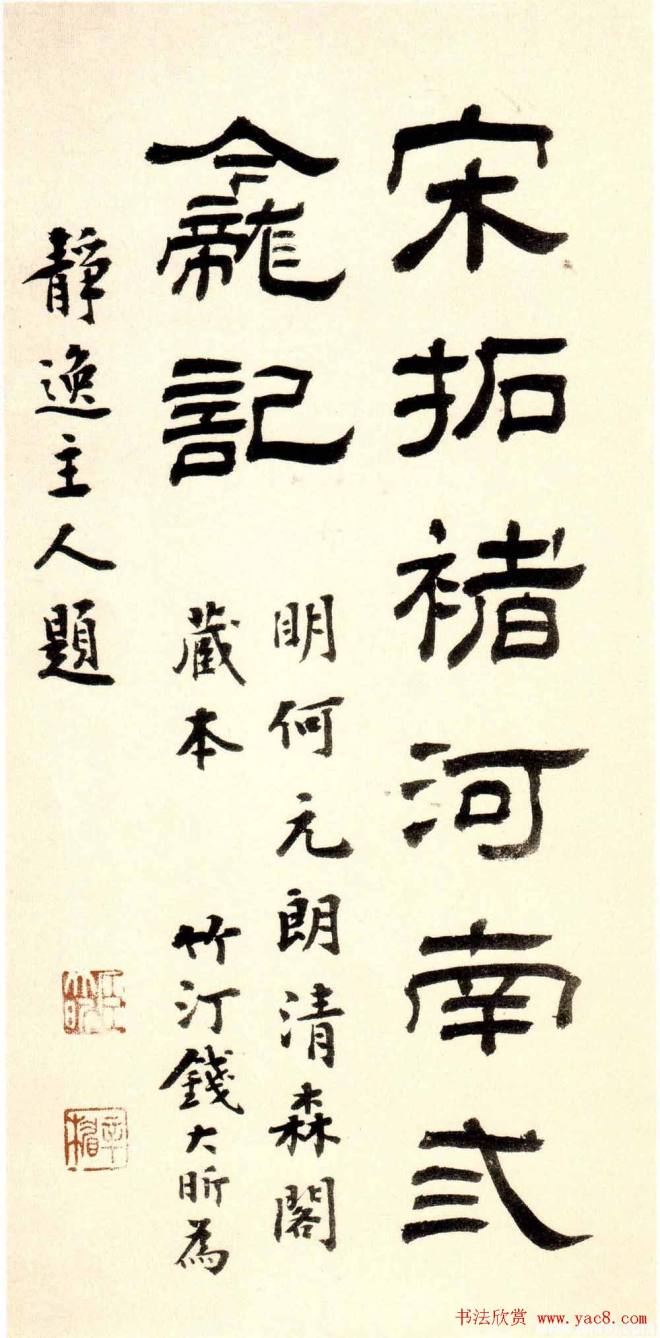 宋拓褚河南弎
龕記
明何元朗清森閣
藏本 竹汀錢大昕為
靜逸主人題
臣大昕
辛楣
书法欣赏 www.yac8.com